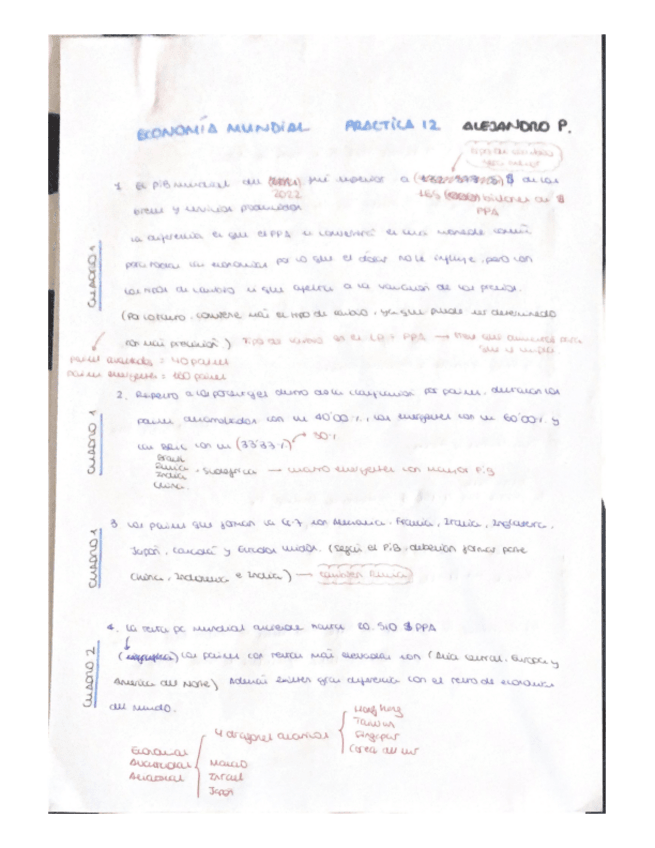 ECONOMÍA MUNDIAL PRACTICA 12 ALEJANDRO P.
tipo de cambio
1. El PIB mundial del a $ de los
2022 165 billones de $
bienes y servicios producidos PPA
La diferencia es que el PPA es convertirá en una moneda común
para todas las economías por lo que el dólar no le influye, pero con
los tipos de cambio si que afecta a la variación de los precios.
(Por lo tanto, conviene más el tipo de cambio, ya que puede ser determinado
con más precisión) tipo de cambio en el LP = PPA
países avanzados = 40 países
países emergentes = 160 países
CUADRO 1
2. Respecto a los porcentajes dentro de la clasificación por países, destacan los
países desarrollados con un 40'00%, los emergentes con un 60'00% y
los BRIC con un (33'33%) 30%
Brasil
Rusia
India - Sudáfrica → cuatro emergentes con mayor PIB
China
CUADRO 1
3 Los países que forman la G-7, son Alemania, Francia, Italia, Inglaterra,
Japón, Canadá y Estados Unidos. (Según el PIB deberían formar parte
China, Indonesia e India) → también Rusia
CUADRO 1
4. La renta pc mundial asciende hasta 20.510 $ PPA
Los países con rentas más elevadas son (Asia central, Europa y
América del Norte) Además existen gran diferencia con el resto de economías
del mundo.
CUADRO 2
Hong Kong
4 dragones asiáticos Taiwan
Singapur
Economías Corea del sur
Avanzadas Macao
Asiáticas Israel
Japón